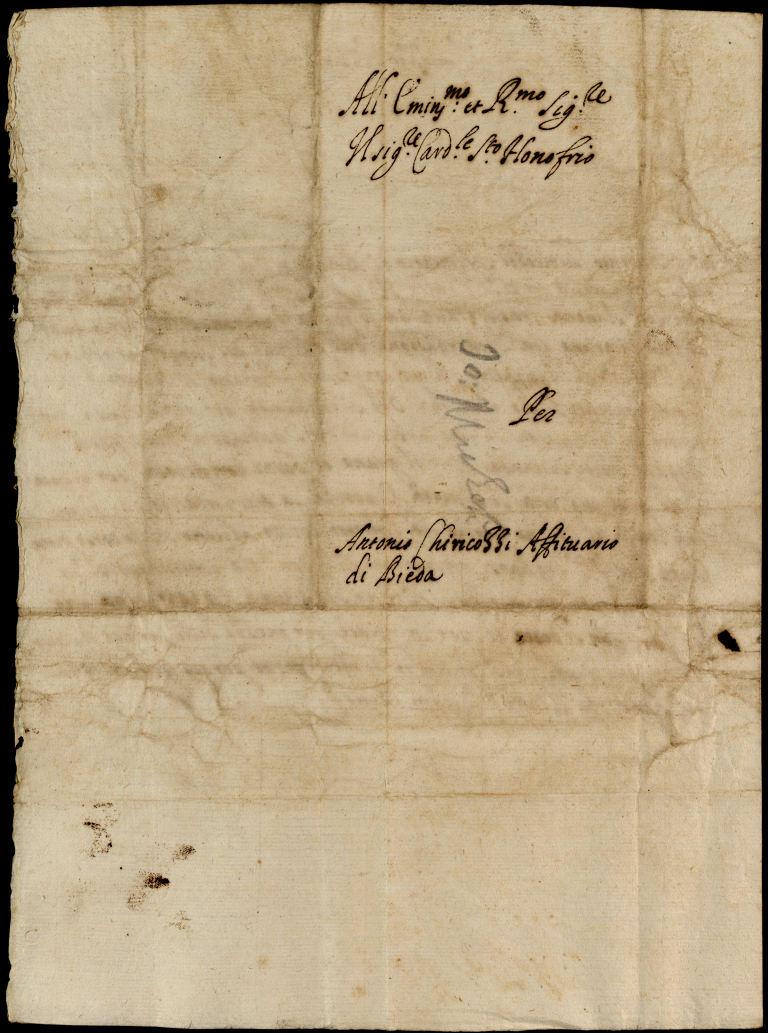 All' Emin.mo et R.mo Sig.re
Il sig.re Card.le S.to Honofrio
Per
Antonio Chiricozzi Affituario
di Bieda